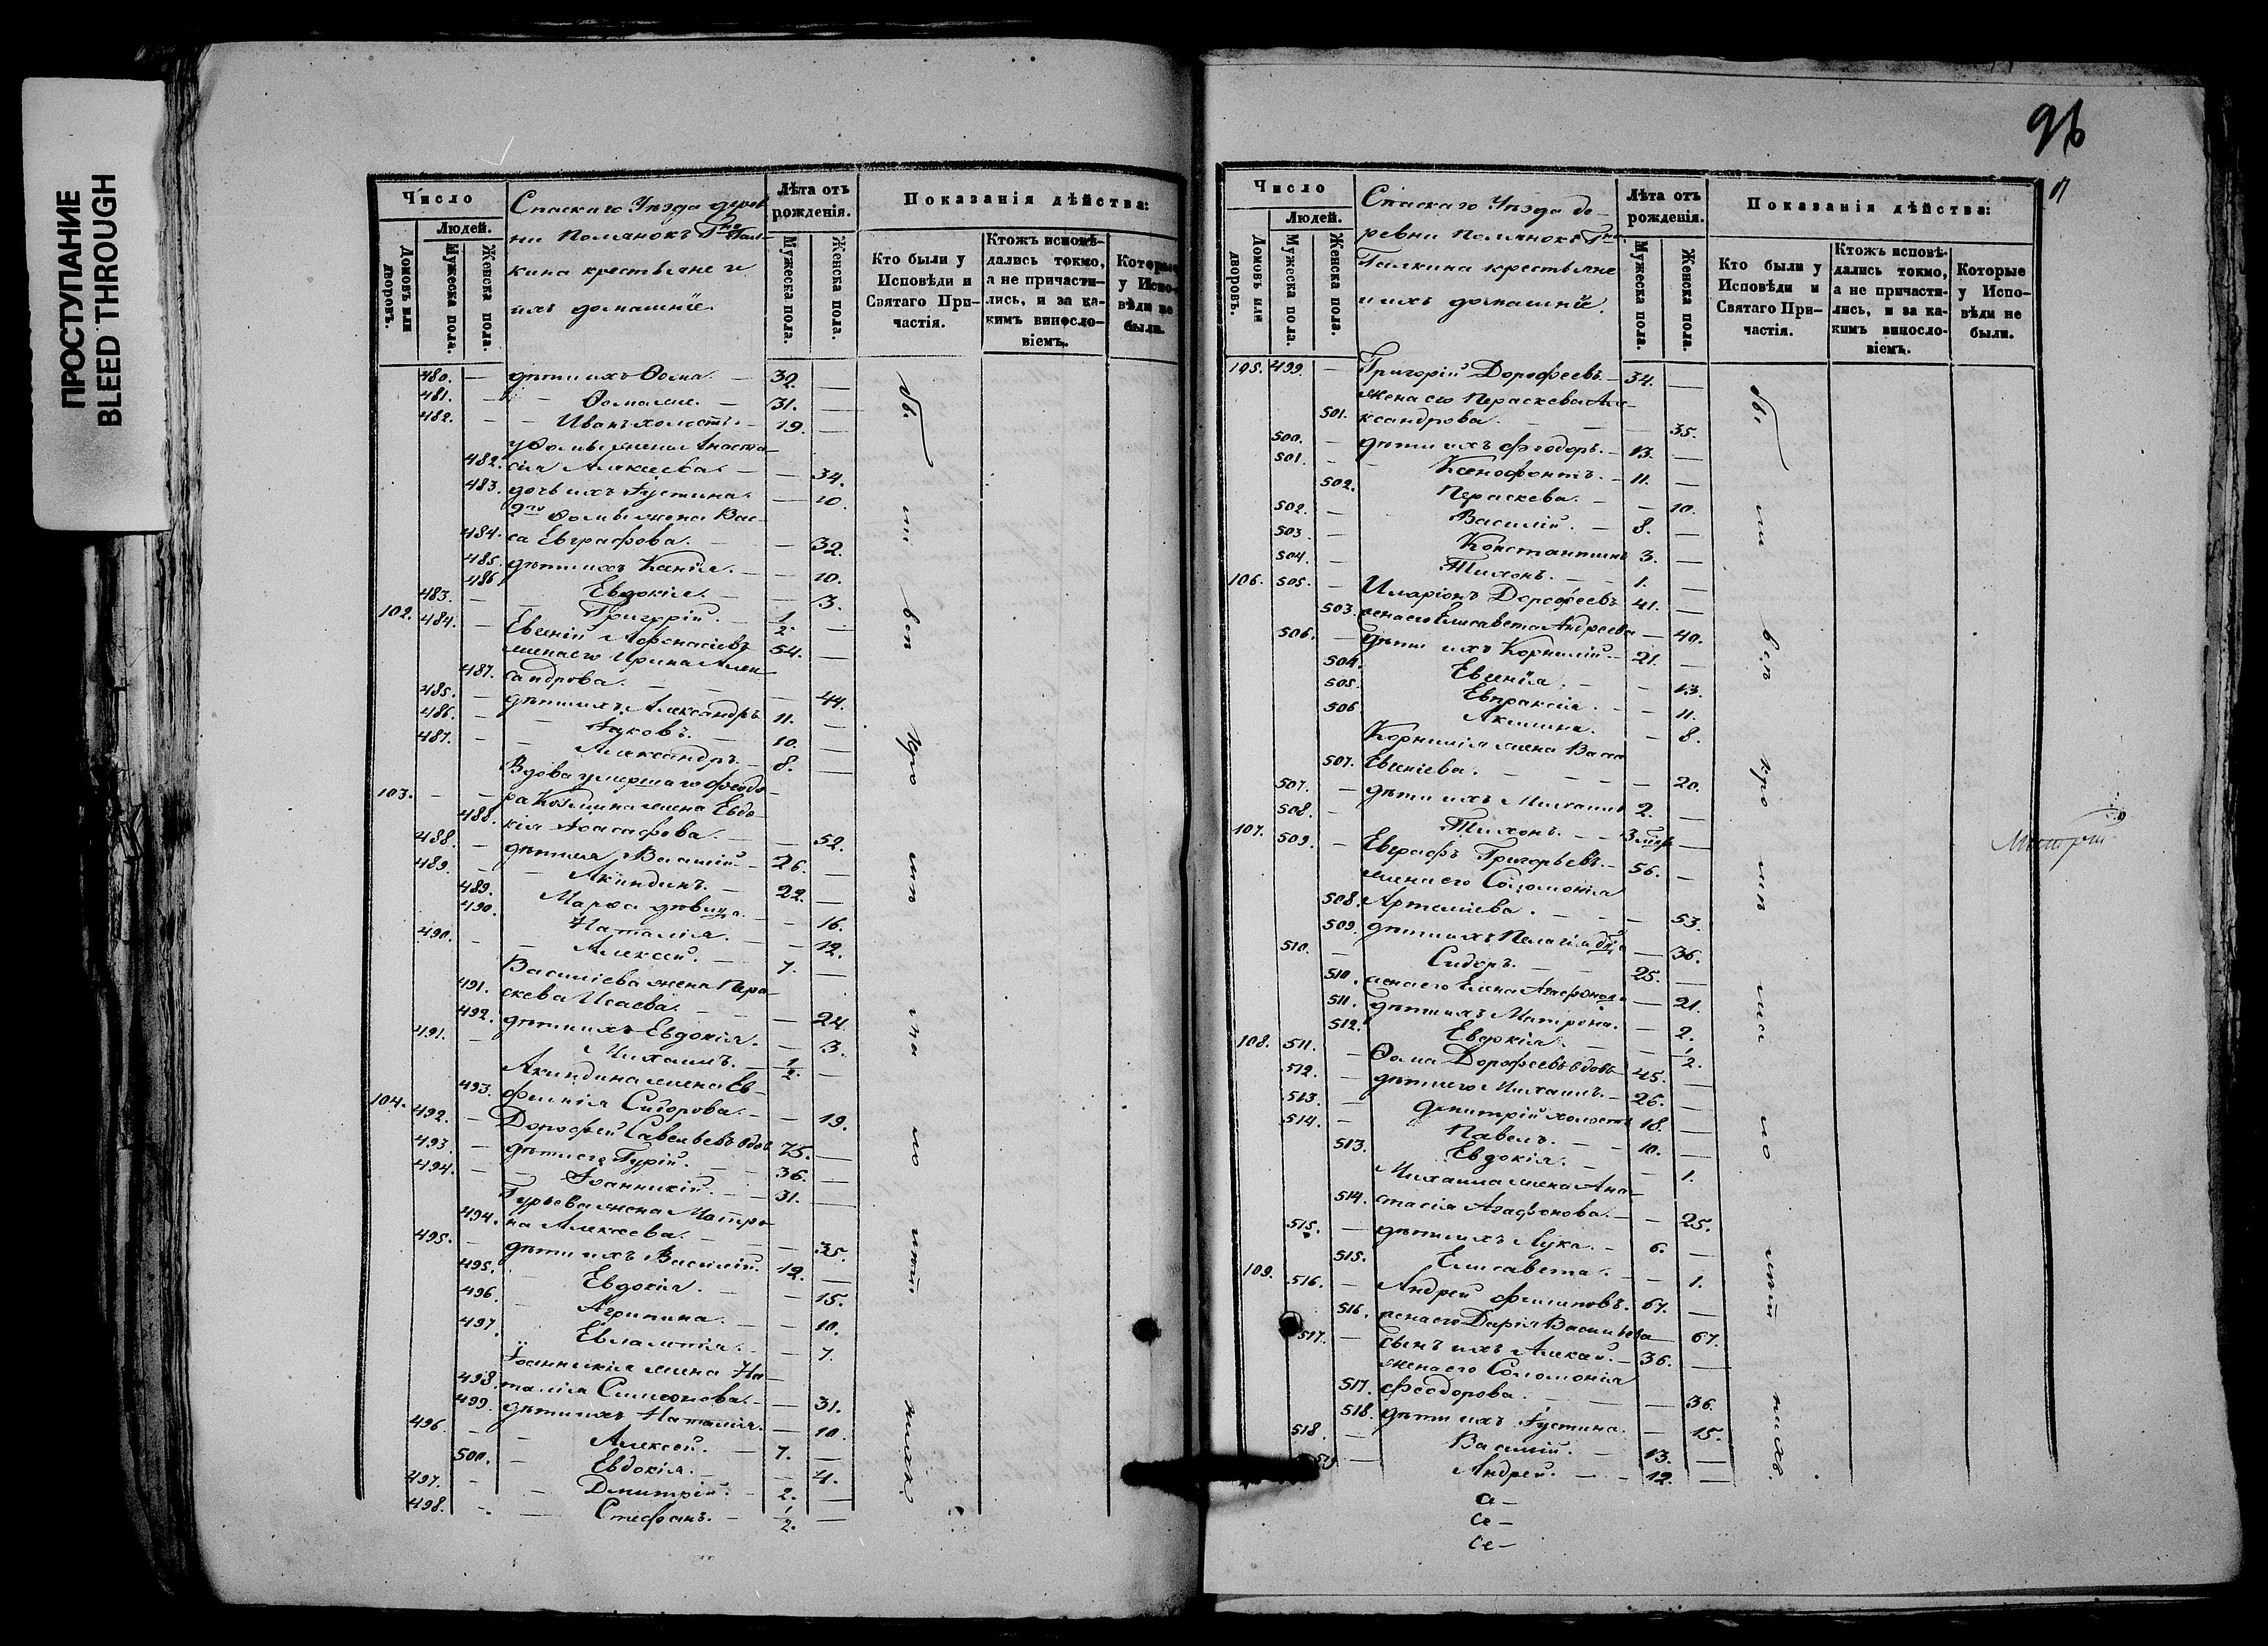 ПРОСТУПАНИЕ
BLEED THROUGH
Число
Людей.
Домовъ или дворовъ.
Мужеска пола.
Женска пола.
Спаскаго Уѣзда дерев
ни Полянокъ Гна Гал-
кина крестьяне и
ихъ домашніе.
Лѣта отъ рожденія.
Мужеска пола.
Женска пола.
Показанія дѣйства:
Кто были у Исповѣди и Святаго Причастія.
Ктожъ исповѣдались токмо, а не причастились, и за какимъ винословіемъ.
Которые у Испо-вѣди не были.
480. — дѣти ихъ Ѳома. — 32. —
481. — Ѳома же. — 31. —
482. — Иванъ холостъ. — 19. —
у Ѳомы жена Анаста-
482. сія Алексеева. — 34.
483. дочь ихъ Іустина. — 10.
2го Ѳомы жена Вас-
484. са Евграфова. — 32.
485. дѣти ихъ Ксенія. — 10.
486. Евдокія. — 3.
483. — Григорій. — 1/2. —
102. 484. — Евгеній Афонасіевъ 54. —
жена его Ирина Алек
487. сандрова. — 44.
485. — дѣти ихъ Александръ 11. —
486. — Іаковъ. — 10. —
487. — Александръ. — 8. —
Вдова умершаго Феодо-
103. — ра Козмина жена Евдо-
488. кія Іоасафова. — 52.
488. — дѣти ея Василій — 26. —
489. — Акиндинъ. — 22. —
489. Марѳа дѣвица. — 16.
490. Наталія. — 12.
490. — Алексей. — 7. —
Василіева жена Пара-
491. скева Исаева. — 24.
492. дѣти ихъ Евдокія. — 3.
491. — Михаилъ. — 1/2. —
Акиндина жена Ев-
493. фимія Сидорова. — 19.
104. 492. — Дорофей Савельевъ вдов 75. —
493. — дѣти его Гурій. — 36. —
494. — Іоанникій. — 31. —
Гурьева жена Матро-
494. на Алексеева. — 35.
495. — дѣти ихъ Василій. 12. —
495. Евдокія. — 15.
496. Агрипина. — 10.
497. Евлампія. — 7.
Іоанникія жена На-
498. талія Симеонова. — 31.
499. дѣти ихъ Наталія. — 10.
496. — Алексей. — 7. —
500. Евдокія. — 4.
497. — Дмитрій. — 2. —
498. — Стефанъ. — 1/2. —
96
Число
Людей.
Домовъ или дворовъ.
Мужеска пола.
Женска пола.
Спаскаго Уѣзда де-
ревни Полянокъ Гна
Галкина крестьяне
и ихъ домашніе.
Лѣта отъ рожденія.
Мужеска пола.
Женска пола.
Показанія дѣйства:
Кто были у Исповѣди и Святаго Причастія.
Ктожъ исповѣдались токмо, а не причастились, и за какимъ винословіемъ.
Которые у Испо-вѣди не были.
105. 499. — Григорій Дорофеевъ. — 34. —
жена его Пераскева Але-
501. ксандрова. — 35.
500. — дѣти ихъ Феодоръ. — 13. —
501. — Ксенофонтъ. — 11. —
502. Пераскева. — 10.
502. — Василій. — 8. —
503. — Константинъ 3. —
504. — Тихонъ. — 1. —
106. 505. — Иларіонъ Дорофеевъ 41. —
503. жена его Елисавета Андреева — 40.
506. — дѣти ихъ Корнилій. — 21. —
504. Евгенія. — 13.
505. Евпраксія. — 11.
506. Акилина. — 8.
Корнилія жена Васса
507. Евгеніева. — 20.
507. — дѣти ихъ Михаилъ 2. —
508. — Тихонъ. —
107. 509. — Евграфъ Григорьевъ. — 56. —
жена его Соломонія
508. Артеміева. — 53.
509. дѣти ихъ Пелагія — 36.
510. — Сидоръ. — 25. —
510. жена его Елена Агафонова — 21.
511. дѣти ихъ Матрона. — 2.
512. Евдокія. — 1/2.
108. 511. — Ѳома Дорофеевъ вдовъ 45. —
512. — дѣти его Михаилъ. — 26. —
513. — Дмитрій холостъ 18. —
514. — Павелъ. — 10. —
513. Евдокія. — 1.
Михаила жена Ана-
514. стасія Агафонова. — 25.
515. — дѣти ихъ Лука. — 6. —
515. Елисавета. — 1.
109. 516. — Андрей Филиповъ. 67. —
516. жена его Дарія Васильева — 67.
517. — сынъ ихъ Алексей. — 36. —
жена его Соломонія
517. Феодорова. — 36.
518. дѣти ихъ Іустина. — 15.
518. — Василій. — 13. —
519. — Андрей. — 12. —